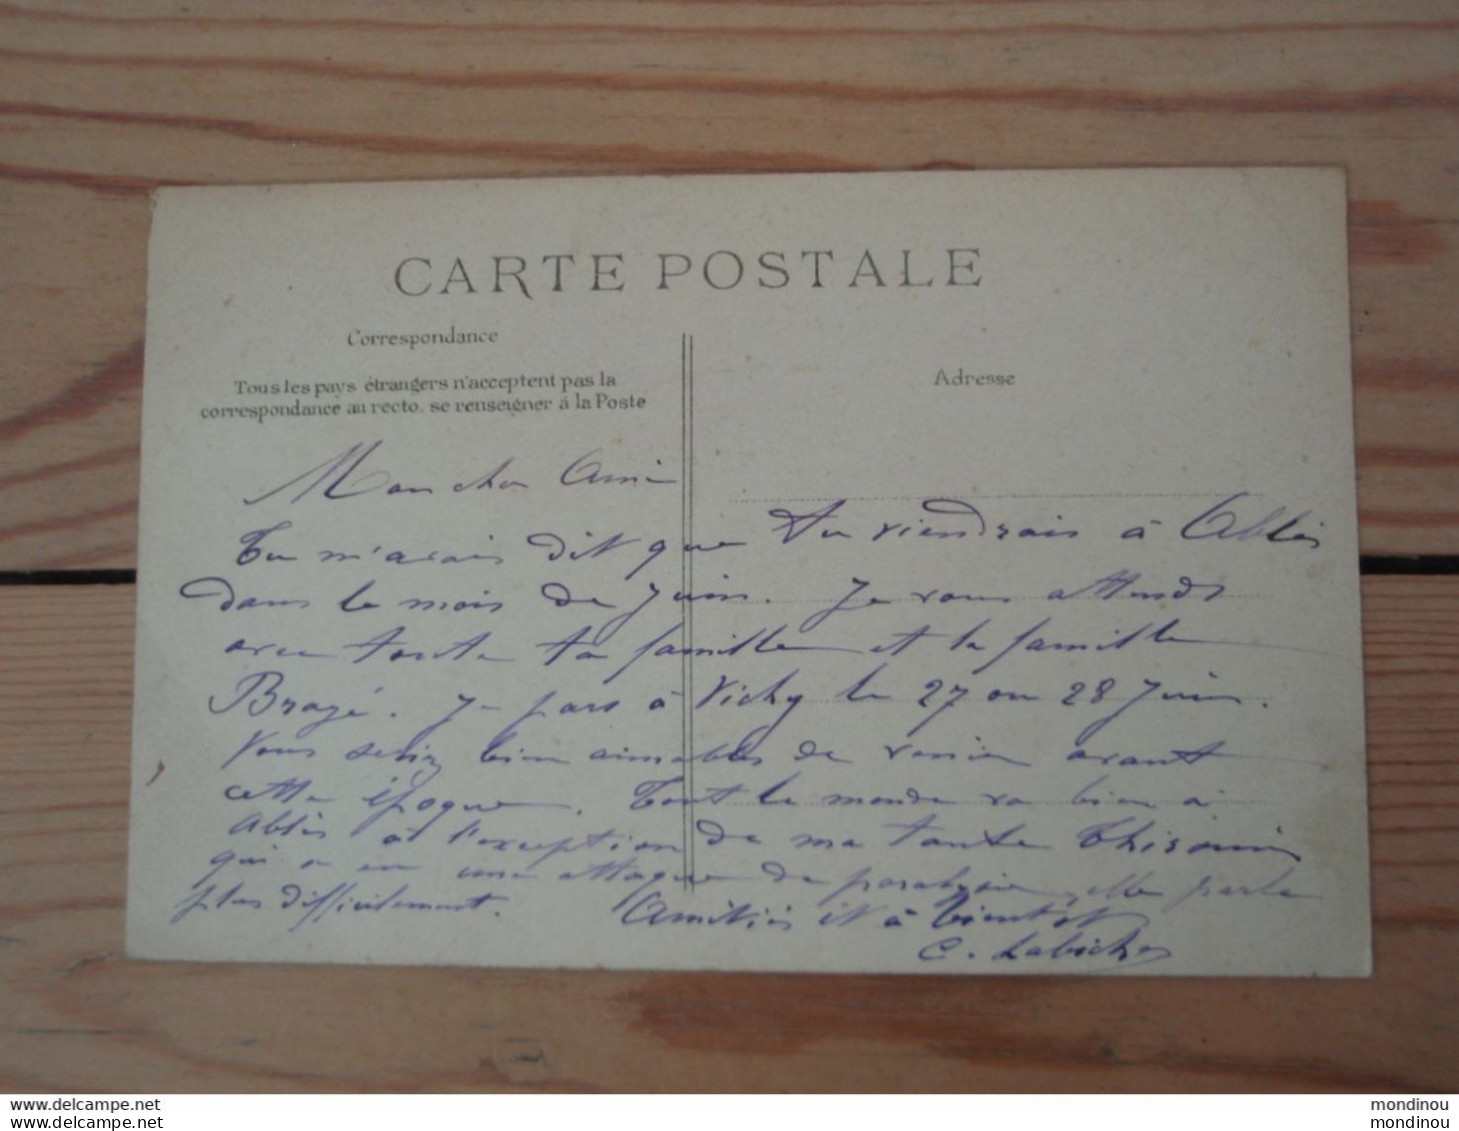 CARTE POSTALE
Correspondance
Tous les pays étrangers n'acceptent pas la
correspondance au recto, se renseigner à la Poste
Adresse
Mon cher Ami
Tu m'avais dit que tu viendrais à Ablis
dans le mois de Juin. Je vous attends
avec toute ta famille et la famille
Brazé. Je pars à Vichy le 27 ou 28 Juin.
Vous seriez bien aimables de venir avant
cette époque. Tout le monde va bien à
Ablis à l'exception de ma tante
qui a eu une attaque de paralysie, elle parle
plus difficilement. Amitiés et à bientôt
C. Labiche
www.delcampe.net
www.delcampe.net
mondinou
mondinou